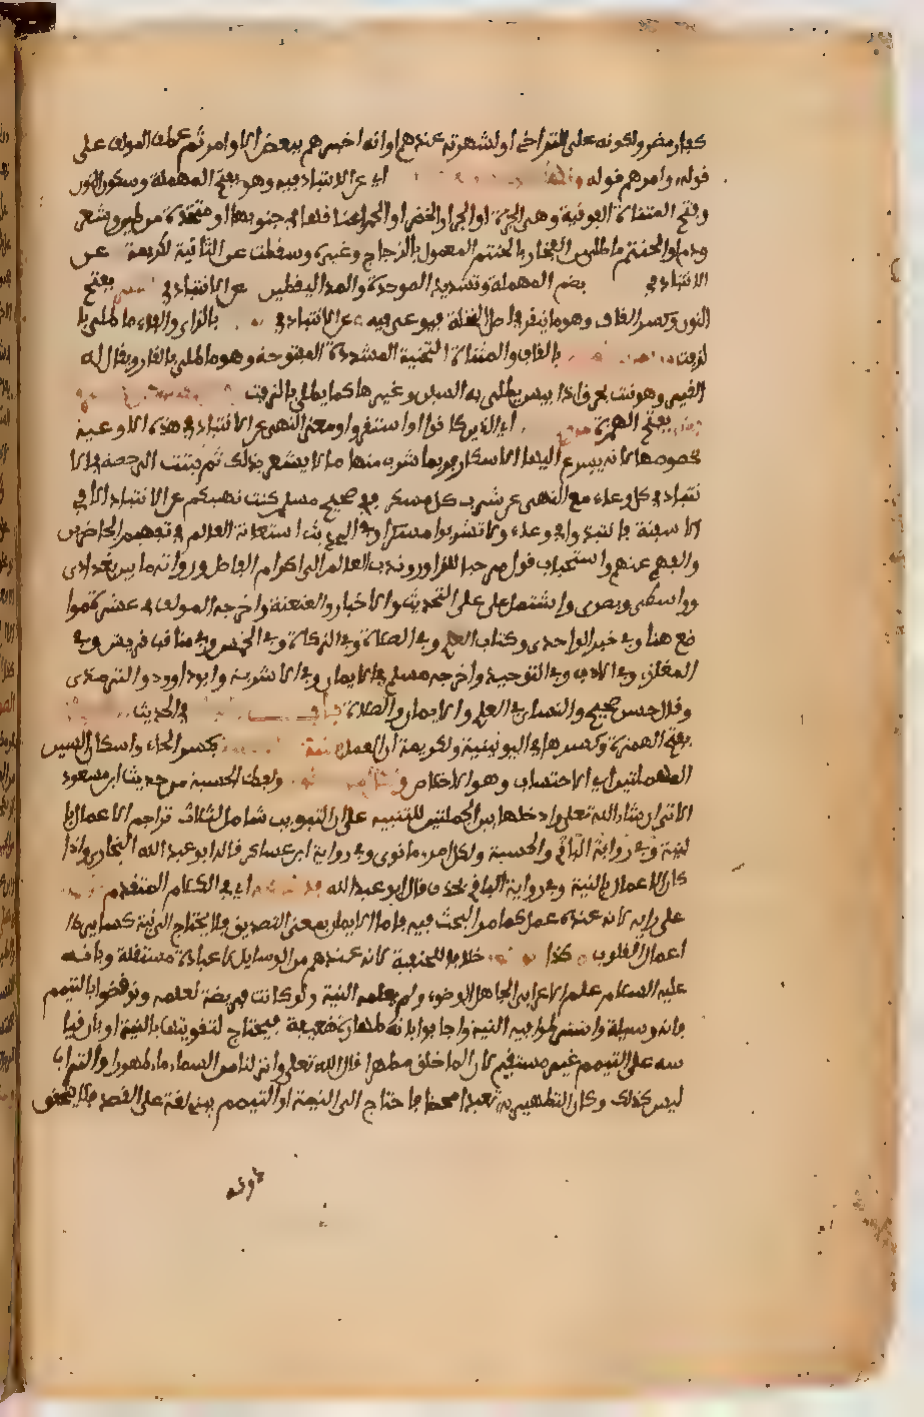 كفار مضر ولكونه على التراخي او لشهرته عندهم او انه اخبرهم ببعض الاوامر ثم عطف المولف على
قوله وامرهم قوله اي عن الانتباذ فيه وهو بفتح المهملة وسكون النون
وفتح المثناة الفوقية وهي الجرة او الجرار الخضر او الحمر اعناقها في جنوبها او متخذة من طين وشعر
ودم او الحنتم ما طلي من الفخار بالحنتم المعمول بالزجاج وغيره وسقطت عن الثانية لكريمة عن
الانتباذ في بضم المهملة وتشديد الموحدة والمد اليقطين عن الانتباذ في بفتح
النون وكسر القاف وهو ما ينقر في اصل النخلة فيوعى فيه عن الانتباذ في بالزاي والفاء ما طلي با
لزفت بالقاف والمثناة التحتية المشددة المفتوحة وهو ما طلي بالقار ويقال له
القير وهو نبت يحرق اذا يبس يطلى به السفن وغيرها كما يطلى بالزفت
بفتح الهمزة اي الذين كانوا او استقروا ومعنى النهي عن الانتباذ في هذه الاوعية
بخصوصها لانه يسرع اليها الاسكار فربما شرب منها ما لا يشعر بذلك ثم ثبتت الرخصة في الا
نتباذ في كل وعاء مع النهي عن شرب كل مسكر ففي صحيح مسلم كنت نهيتكم عن الانتباذ الا في
الاسقية فانتبذوا في وعاء ولا تشربوا مسكرا وفي الحديث استعانة العالم في تفهيم الحاضرين
والفهم عنهم واستحباب قول مرحبا للزاور وندب العالم الى اكرام الفاضل ورواته ما بين بغدادي
وواسطي وبصري واشتمل على التحديث والاخبار والعنعنة واخرجه المولف في عشرة موا
ضع هنا وفي خبر الواحد وكتاب العلم وفي الصلاة وفي الزكاة وفي الخمس وفي مناقب قريش وفي
المغازي وفي الادب وفي التوحيد واخرجه مسلم في الايمان وفي الاشربة وابو داوود والترمذي
وقال حسن صحيح والنساي في العلم والايمان والصلاة باب في الحديث
بفتح الهمزة وكسرها في اليونينية ولكريمة ان العمل بكسر الحاء واسكان السين
المهملتين اي الاحتساب وهو الاخلاص ولفظ الحسبة من حديث ابن مسعود
الاتي ان شاء الله تعلى وادخلها بين الجملتين للتنبيه على ان التبويب شامل لثلاث تراجم الاعمال با
لنية وفي رواية الباقي والحسبة ولكل امرء ما نوى وفي رواية ابن عساكر قال ابو عبد الله البخاري واذا
كان الاعمال بالنية وفي رواية الباقي بحذف قال ابو عبد الله اي في الكلام المتقدم
على رايه لانه عنده عمل كما مر البحث فيه واما الايمان بمعنى التصديق فلا يحتاج الى نية كساير
اعمال القلوب كذا خلافا للحنفية لانه عندهم من الوسايل لا عبادة مستقلة وبانه
عليه السلام علم الاعرابي الجاهل الوضوء ولم يعلمه النية ولو كانت فريضة لعلمه ونوقضوا بالتيمم
فانه وسيلة واشترطوا فيه النية واجابوا بانه طهارة ضعيفة فيحتاج لتقويتها بالنية او بان قيا
سه على التيمم غير مستقيم لان الماء خلق مطهرا قال الله تعلى وانزلنا من السماء ماء طهورا والتراب
ليس كذلك وكان التطهير به تعبدا محضا فاحتاج الى النية او التيمم ينبي لغة على القصد فلا يتحقق